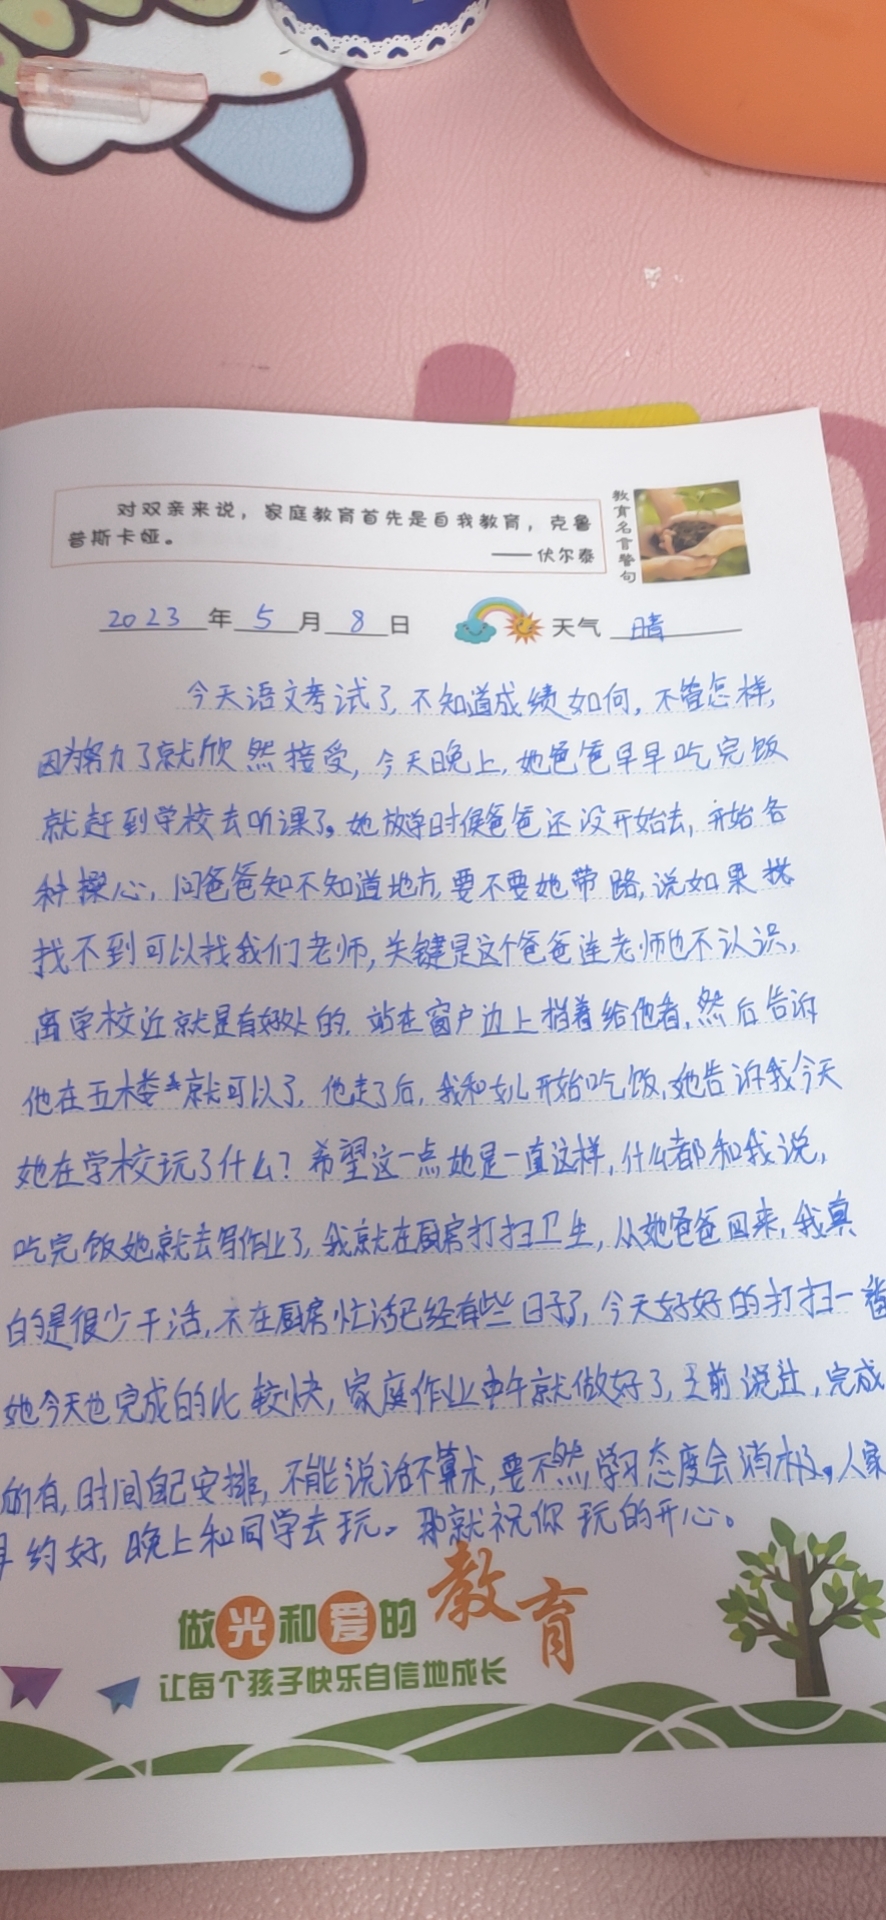 对双亲来说，家庭教育首先是自我教育，克鲁
普斯卡娅。
——伏尔泰
教育名言警句
2023年5月8日 天气 晴
今天语文考试了，不知道成绩如何，不管怎样，
因为努力了就欣然接受，今天晚上，她爸爸早早吃完饭
就赶到学校去听课了。她放学时候爸爸还没开始去，开始各
种操心，问爸爸知不知道地方，要不要她带路，说如果找
找不到可以找我们老师，关键是这个爸爸连老师也不认识，
离学校近就是有好处的，站在窗户边上指着给他看，然后告诉
他在五楼就可以了，他走了后，我和女儿开始吃饭，她告诉我今天
她在学校玩了什么？希望这一点她是一直这样，什么都和我说，
吃完饭她就去写作业了，我就在厨房打扫卫生，从她爸爸回来，我真
的是很少干活，不在厨房忙活已经有些日子了，今天好好的打扫一番
她今天也完成的比较快，家庭作业中午就做好了，之前说过，完成
的有，时间自己安排，不能说话不算术，要不然，学习态度会消极，人家
早约好，晚上和同学去玩。那就祝你玩的开心。
做光和爱的教育
让每个孩子快乐自信地成长